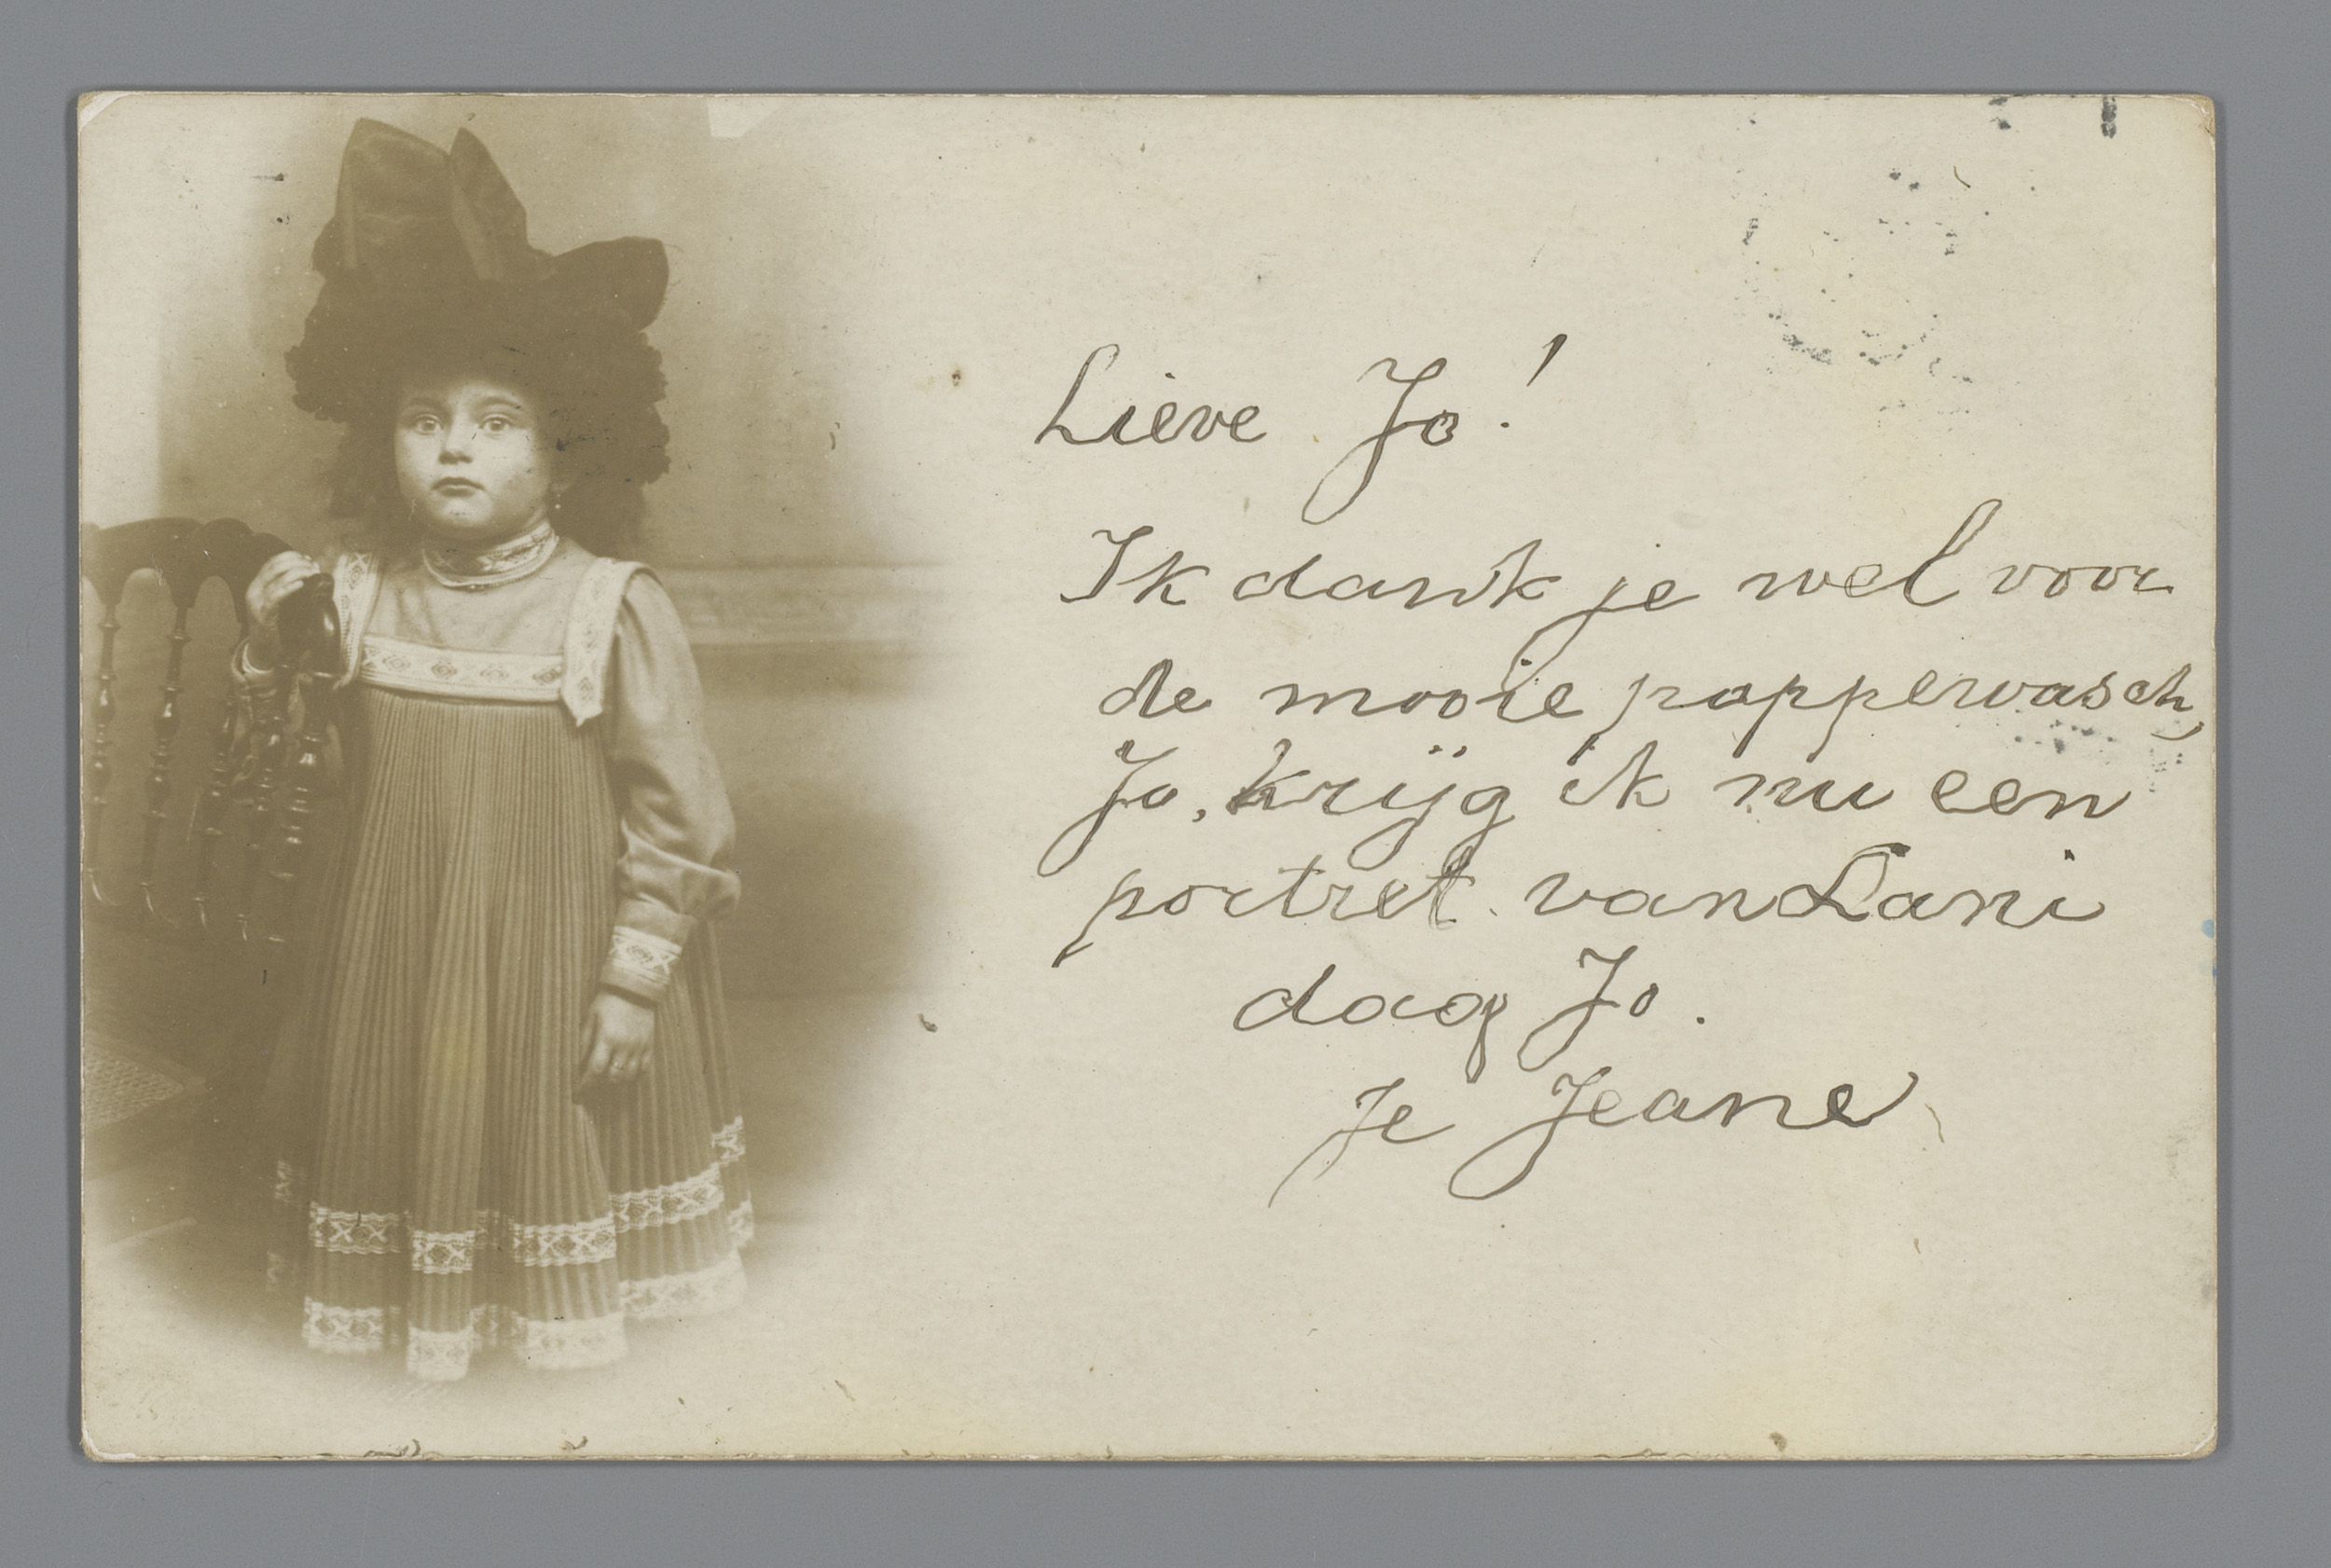 Lieve Jo!
Ik dank je wel voor
de mooie poppewasch,
Jo, krijg ik nu een
portret van Lani
dag Jo.
Je Jeane